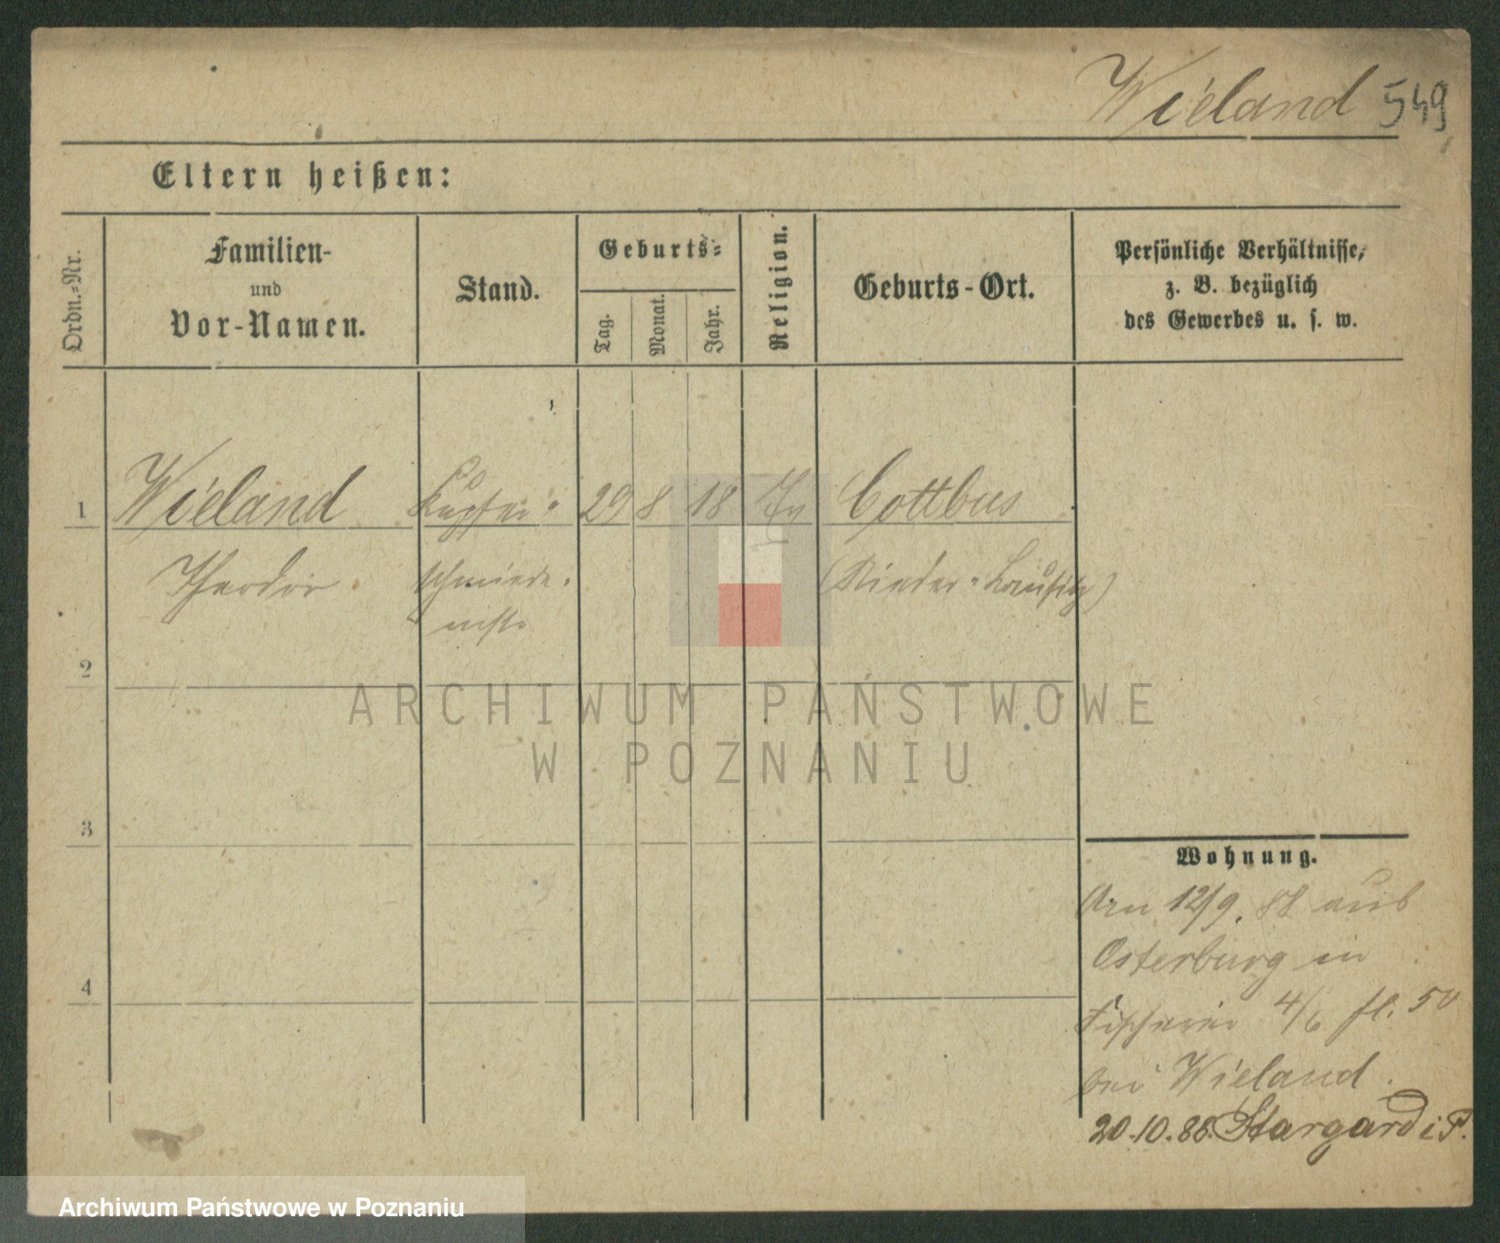 Wieland 549
Eltern heißen:
Ordn.=Nr.
Familien-
und
Vor-Namen.
Stand.
Geburts=
Tag.
Monat.
Jahr.
Religion.
Geburts-Ort.
Persönliche Verhältnisse,
z. B. bezüglich
des Gewerbes u. s. w.
1 Wieland Kupfer- 29 8 18 Cottbus
Theodor schmiede- (Nieder-Lausitz)
2
3
4
ARCHIWUM PAŃSTWOWE
W POZNANIU
Wohnung.
Am 12/9. 88 aus
Osterburg in
Fischerei 4/6 fl. 50
bei Wieland.
20.10.88. Stargard i P.
Archiwum Państwowe w Poznaniu